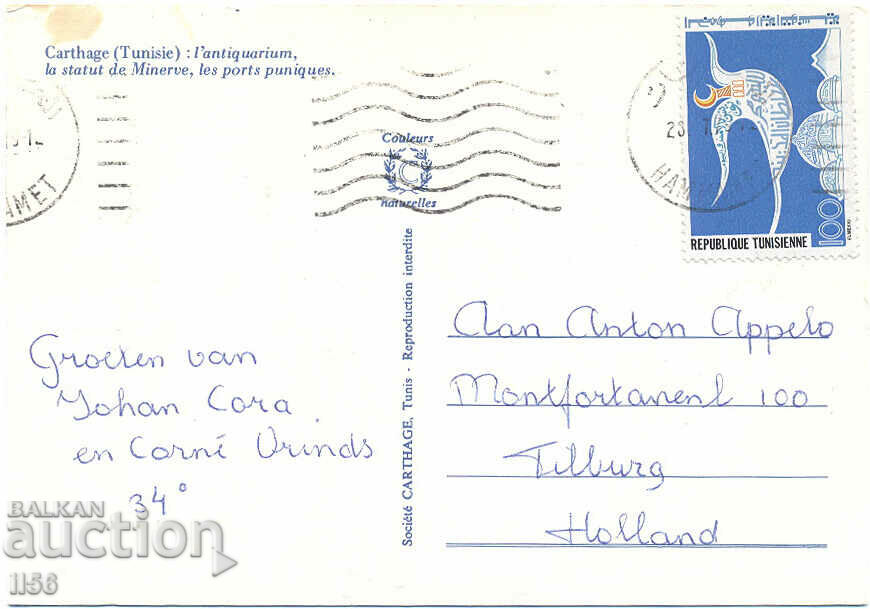 Carthage (Tunisie) : l'antiquarium,
la statut de Minerve, les ports puniques.
Couleurs
C
naturelles
AMET
HAM
REPUBLIQUE TUNISIENNE
100
Société CARTHAGE, Tunis - Reproduction interdite
Groeten van
Johan Cora
en Corné Vrinds
34°
Aan Anton Appelo
Montfortanenl 100
Tilburg
Holland
BALKAN
auction
1156